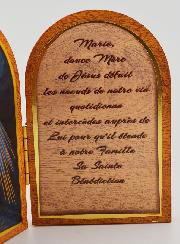 Marie,
douce Mère
de Jésus défait
les noeuds de notre vie
quotidienne
et intercèdes auprès de
Lui pour qu'il étende
à notre Famille
Sa Sainte
Bénédiction